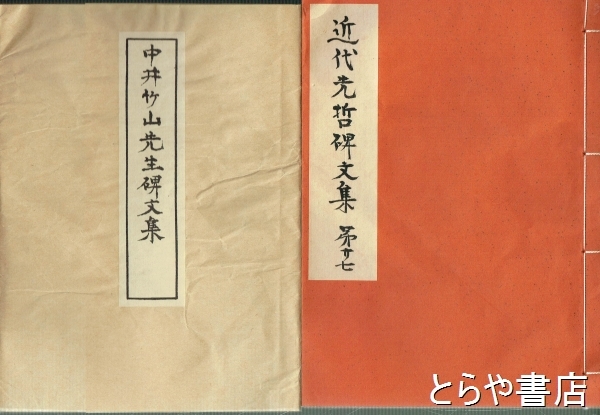 中井竹山先生碑文集
近代先哲碑文集 第廿七
とらや書店